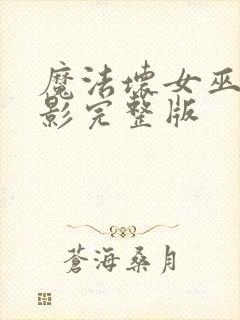 魔法坏女巫
影完整版
蒼海桑月